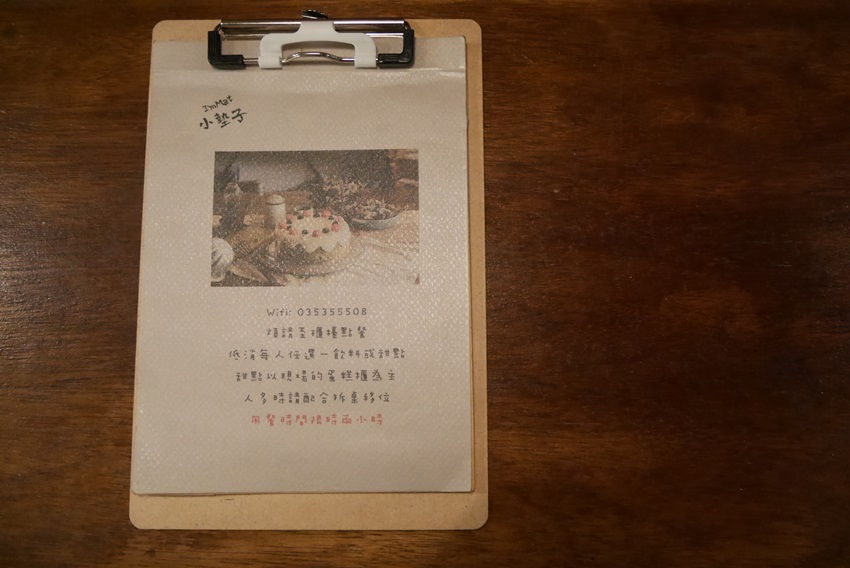 I'm Mat
小墊子
Wifi: 035355508
煩請至櫃檯點餐
低消每人任選一飲料或甜點
甜點以現場的蛋糕櫃為主
人多時請配合拆桌移位
用餐時間限時兩小時